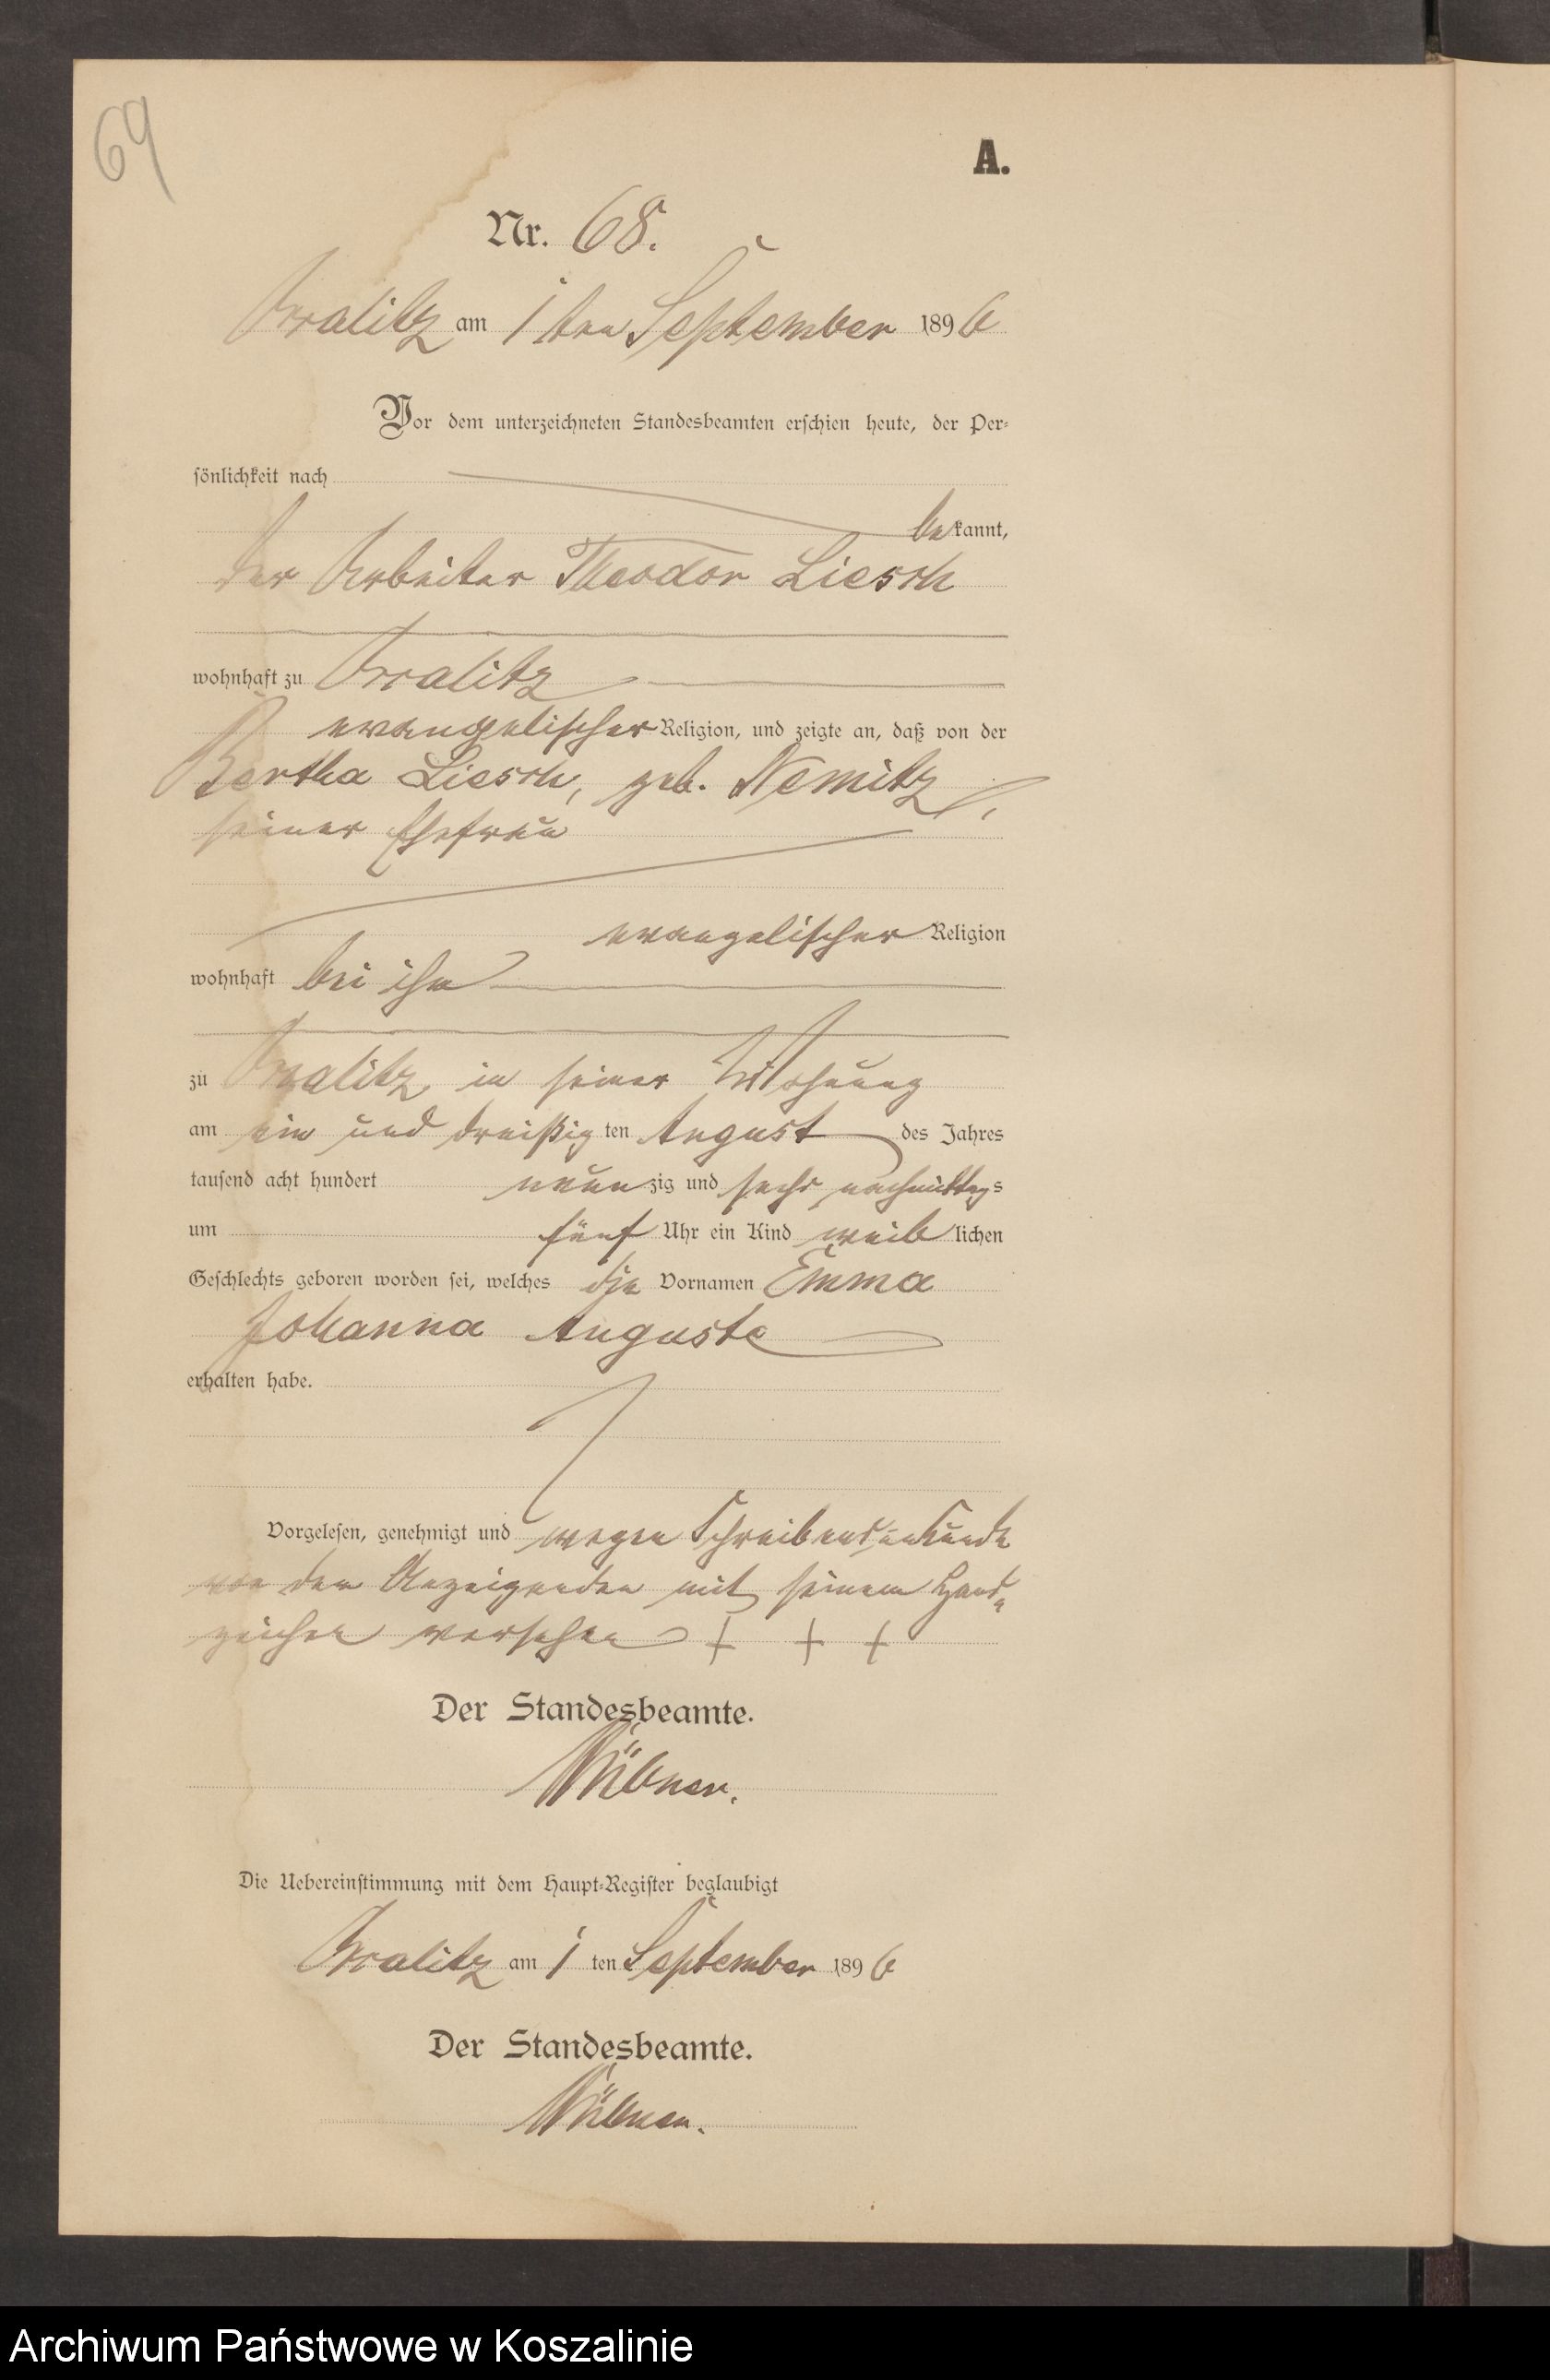 69
A.
Nr. 68.
am 1 ten September 1896
Vor dem unterzeichneten Standesbeamten erschien heute, der Per-
sönlichkeit nach
bekannt,
der Arbeiter Theodor Liesch
wohnhaft zu
evangelischer Religion, und zeigte an, daß von der
Bertha Liesch, geb. Nemitz,
seiner Ehefrau
evangelischer Religion
wohnhaft bei ihm
zu in seiner Wohnung
am ein und dreißig ten August des Jahres
tausend acht hundert neunzig und sechs nachmittags
um fünf Uhr ein Kind weiblichen
Geschlechts geboren worden sei, welches die Vornamen Emma
Johanna Auguste
erhalten habe.
Vorgelesen, genehmigt und wegen Schreibensunkunde
von dem Anzeigenden mit seinem Hand-
zeichen versehen + + +
Der Standesbeamte.
Die Uebereinstimmung mit dem Haupt-Register beglaubigt
am 1 ten September 1896
Der Standesbeamte.
Archiwum Państwowe w Koszalinie